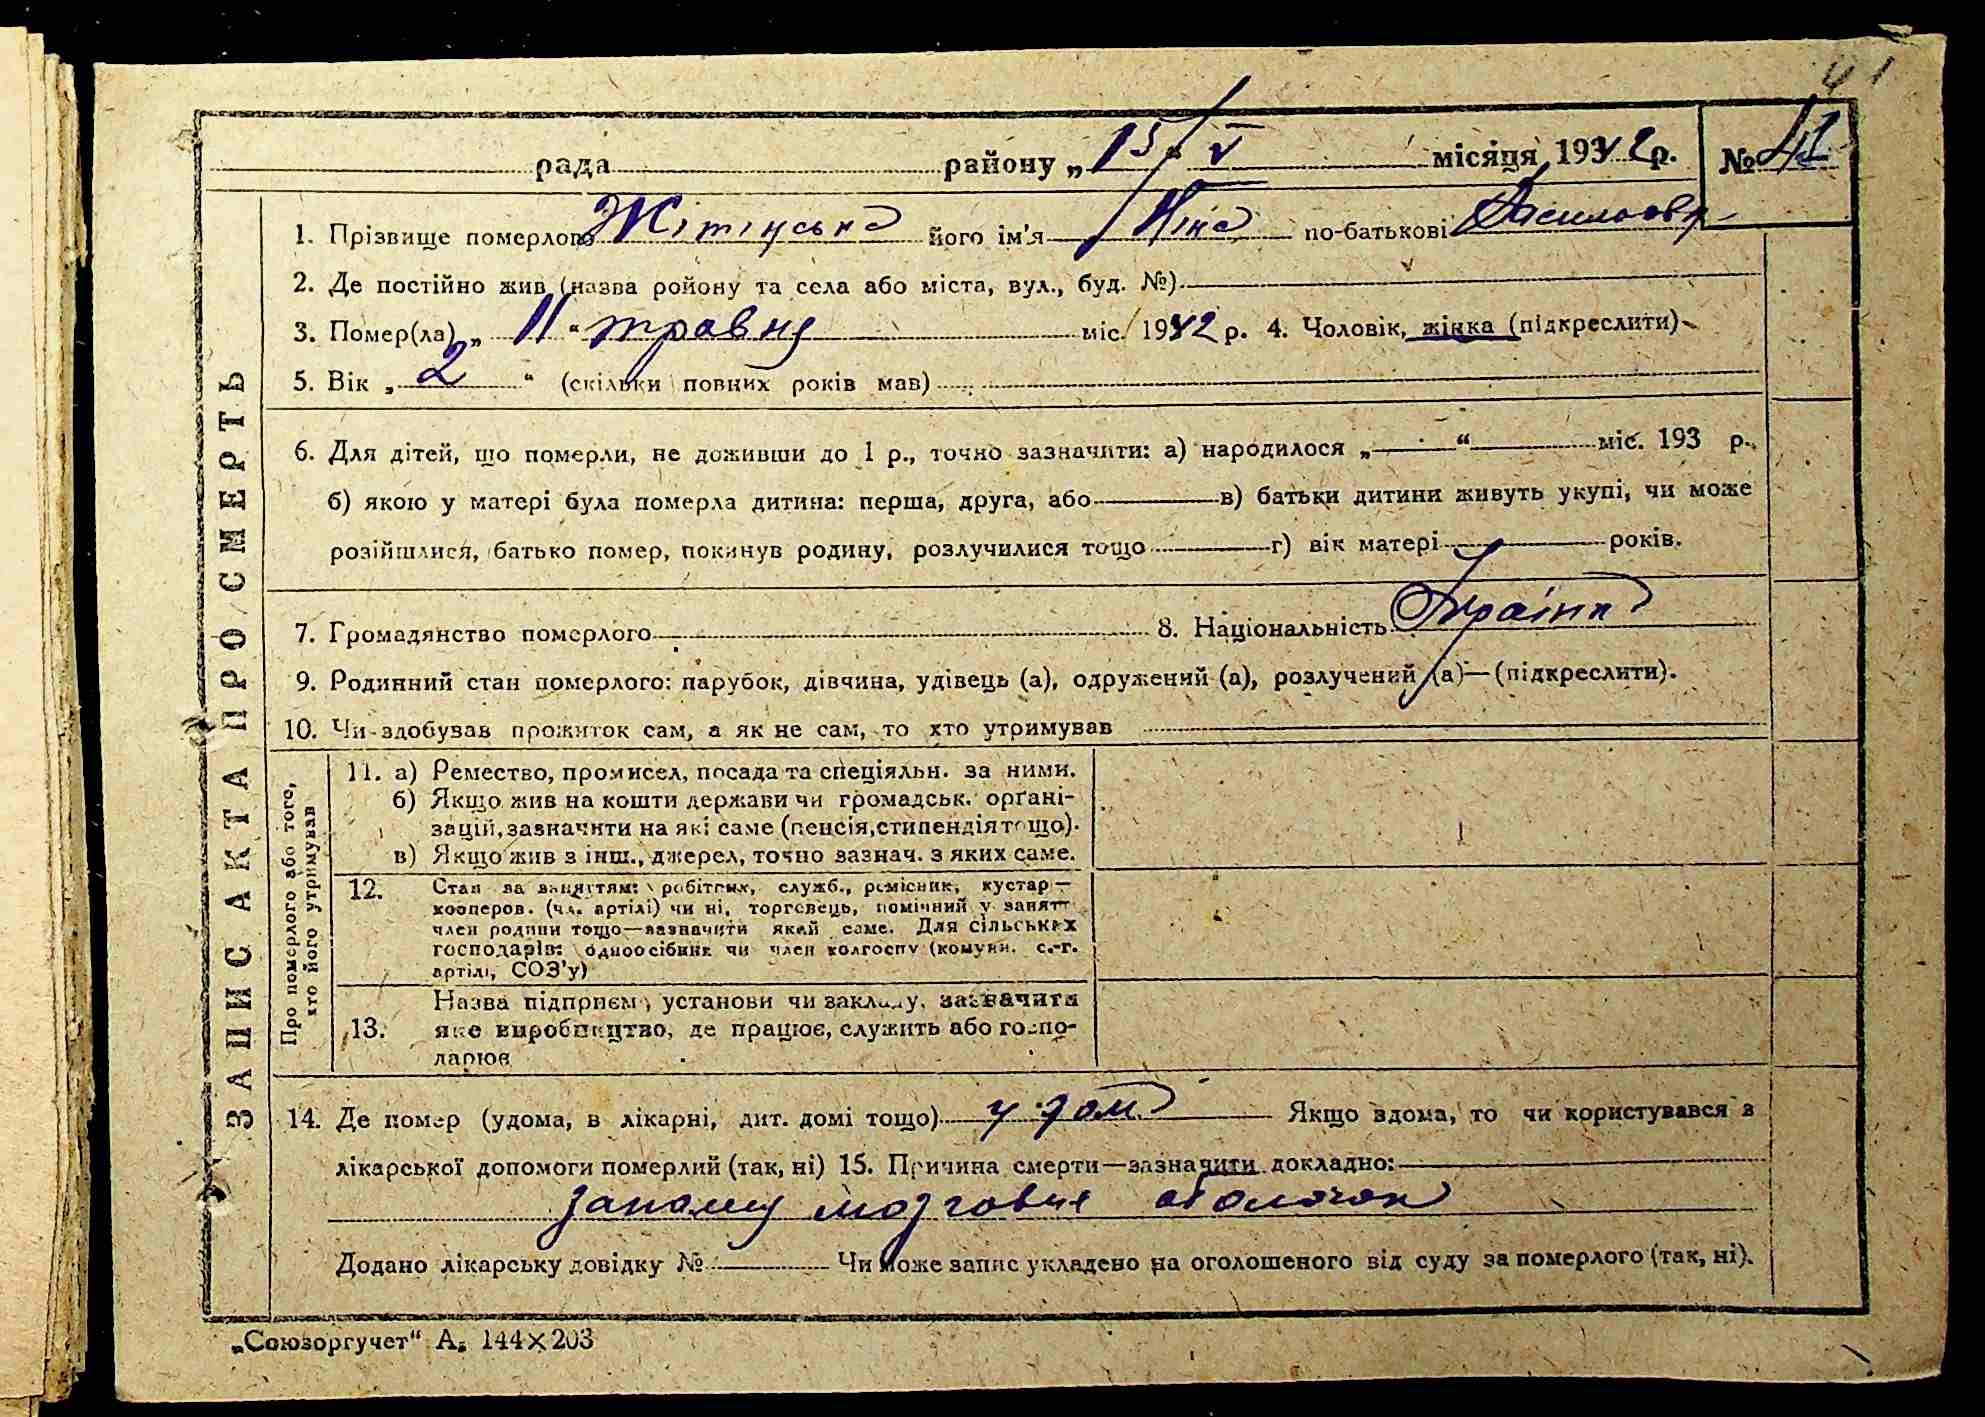 41
рада района „15/V місяця 1942 р. № 41
1. Прізвище померлого Жітінська його ім'я Ніна по-батькові
2. Де постійно жив (назва ройону та села або міста, вул., буд. №)
3. Помер(ла) „11“ травня міс. 1942 р. 4. Чоловік, жінка (підкреслити)
5. Вік „2“ (скільки повних років мав)
6. Для дітей, що померли, не доживши до 1 р., точно зазначити: а) народилося „ “ міс. 193 р.
б) якою у матері була померла дитина: перша, друга, або в) батьки дитини живуть укупі, чи може
розійшлися, батько помер, покинув родину, розлучилися тощо г) вік матері років.
7. Громадянство померлого 8. Національність Україн
9. Родинний стан померлого: парубок, дівчина, удівець (а), одружений (а), розлучений (а)—(підкреслити).
10. Чи здобував прожиток сам, а як не сам, то хто утримував
ЗАПИС АКТА ПРО СМЕРТЬ
Про померлого або того,
хто його утримував
11. а) Ремество, промисел, посада та спеціяльн. за ними.
б) Якщо жив на кошти держави чи громадськ. орґані-
зацій, зазначити на які саме (пенсія, стипендія тощо).
в) Якщо жив з інш., джерел, точно зазнач. з яких саме.
12. Стан за заняттям: робітник, служб., ремісник, кустар—
кооперов. (чл. артілі) чи ні, торговець, помічний у занятт
член родини тощо—зазначити який саме. Для сільських
господарів: одноосібник чи член колгоспу (комуни, с.-г.
артілі, СОЗ'у)
13. Назва підприєм., установи чи закладу, зазначити
яке виробництво, де працює, служить або госпо-
дарює
14. Де помер (удома, в лікарні, дит. домі тощо) у дома Якщо вдома, то чи користувався з
лікарської допомоги померлий (так, ні) 15. Причина смерти—зазначити докладно:
мозгових оболочок
Додано лікарську довідку № Чи може запис укладено на оголошеного від суду за померлого (так, ні).
„Союзоргучет“ А5 144×203